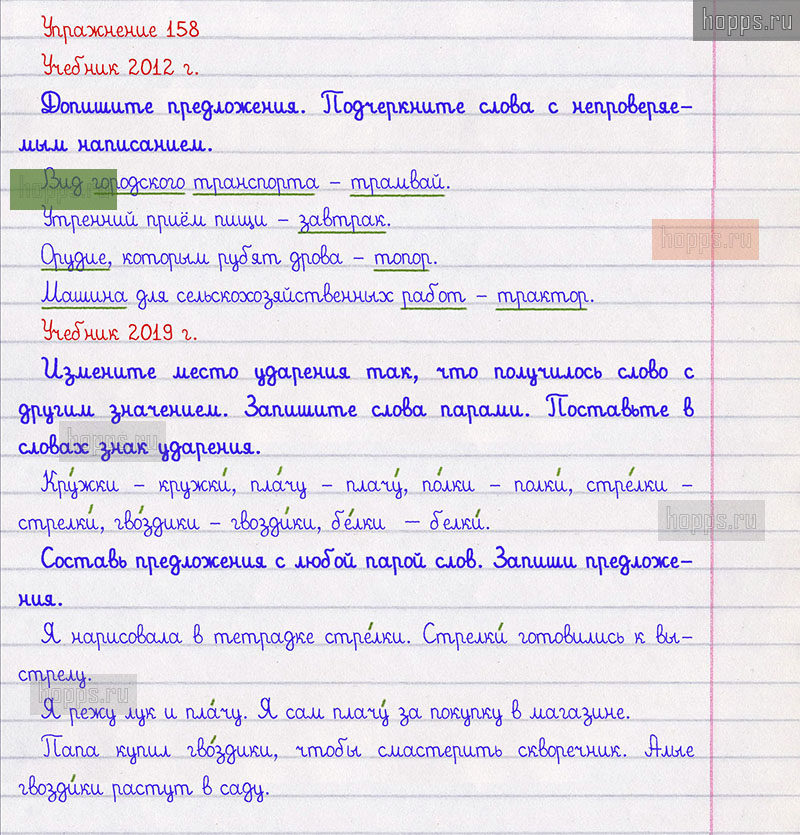 hopps.ru
Упражнение 158
Учебник 2012 г.
Допишите предложения. Подчеркните слова с непроверяе-
мым написанием.
Вид городского транспорта – трамвай.
hopps.ru
Утренний приём пищи – завтрак.
hopps.ru
Орудие, которым рубят дрова – топор.
Машина для сельскохозяйственных работ – трактор.
Учебник 2019 г.
Измените место ударения так, что получилось слово с
другим значением. Запишите слова парами. Поставьте в
словах знак ударения.
hopps.ru
Кру́жки – кружки́, пла́чу – плачу́, по́лки – полки́, стре́лки –
стрелки́, гво́здики – гвозди́ки, бе́лки — белки́.
hopps.ru
Составь предложения с любой парой слов. Запиши предложе-
ния.
Я нарисовала в тетрадке стре́лки. Стрелки́ готовились к вы-
стрелу.
hopps.ru
Я режу лук и пла́чу. Я сам плачу́ за покупку в магазине.
Папа купил гво́здики, чтобы смастерить скворечник. Алые
гвозди́ки растут в саду.